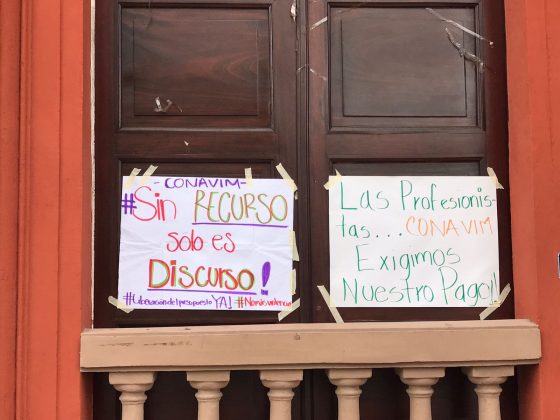 - CONAVIM -
#Sin RECURSO
solo es
Discurso!
#Liberacióndelpresupuesto YA! #Nomásviolencia
Las Profesionis-
tas... CONAVIM
Exigimos
Nuestro Pago!